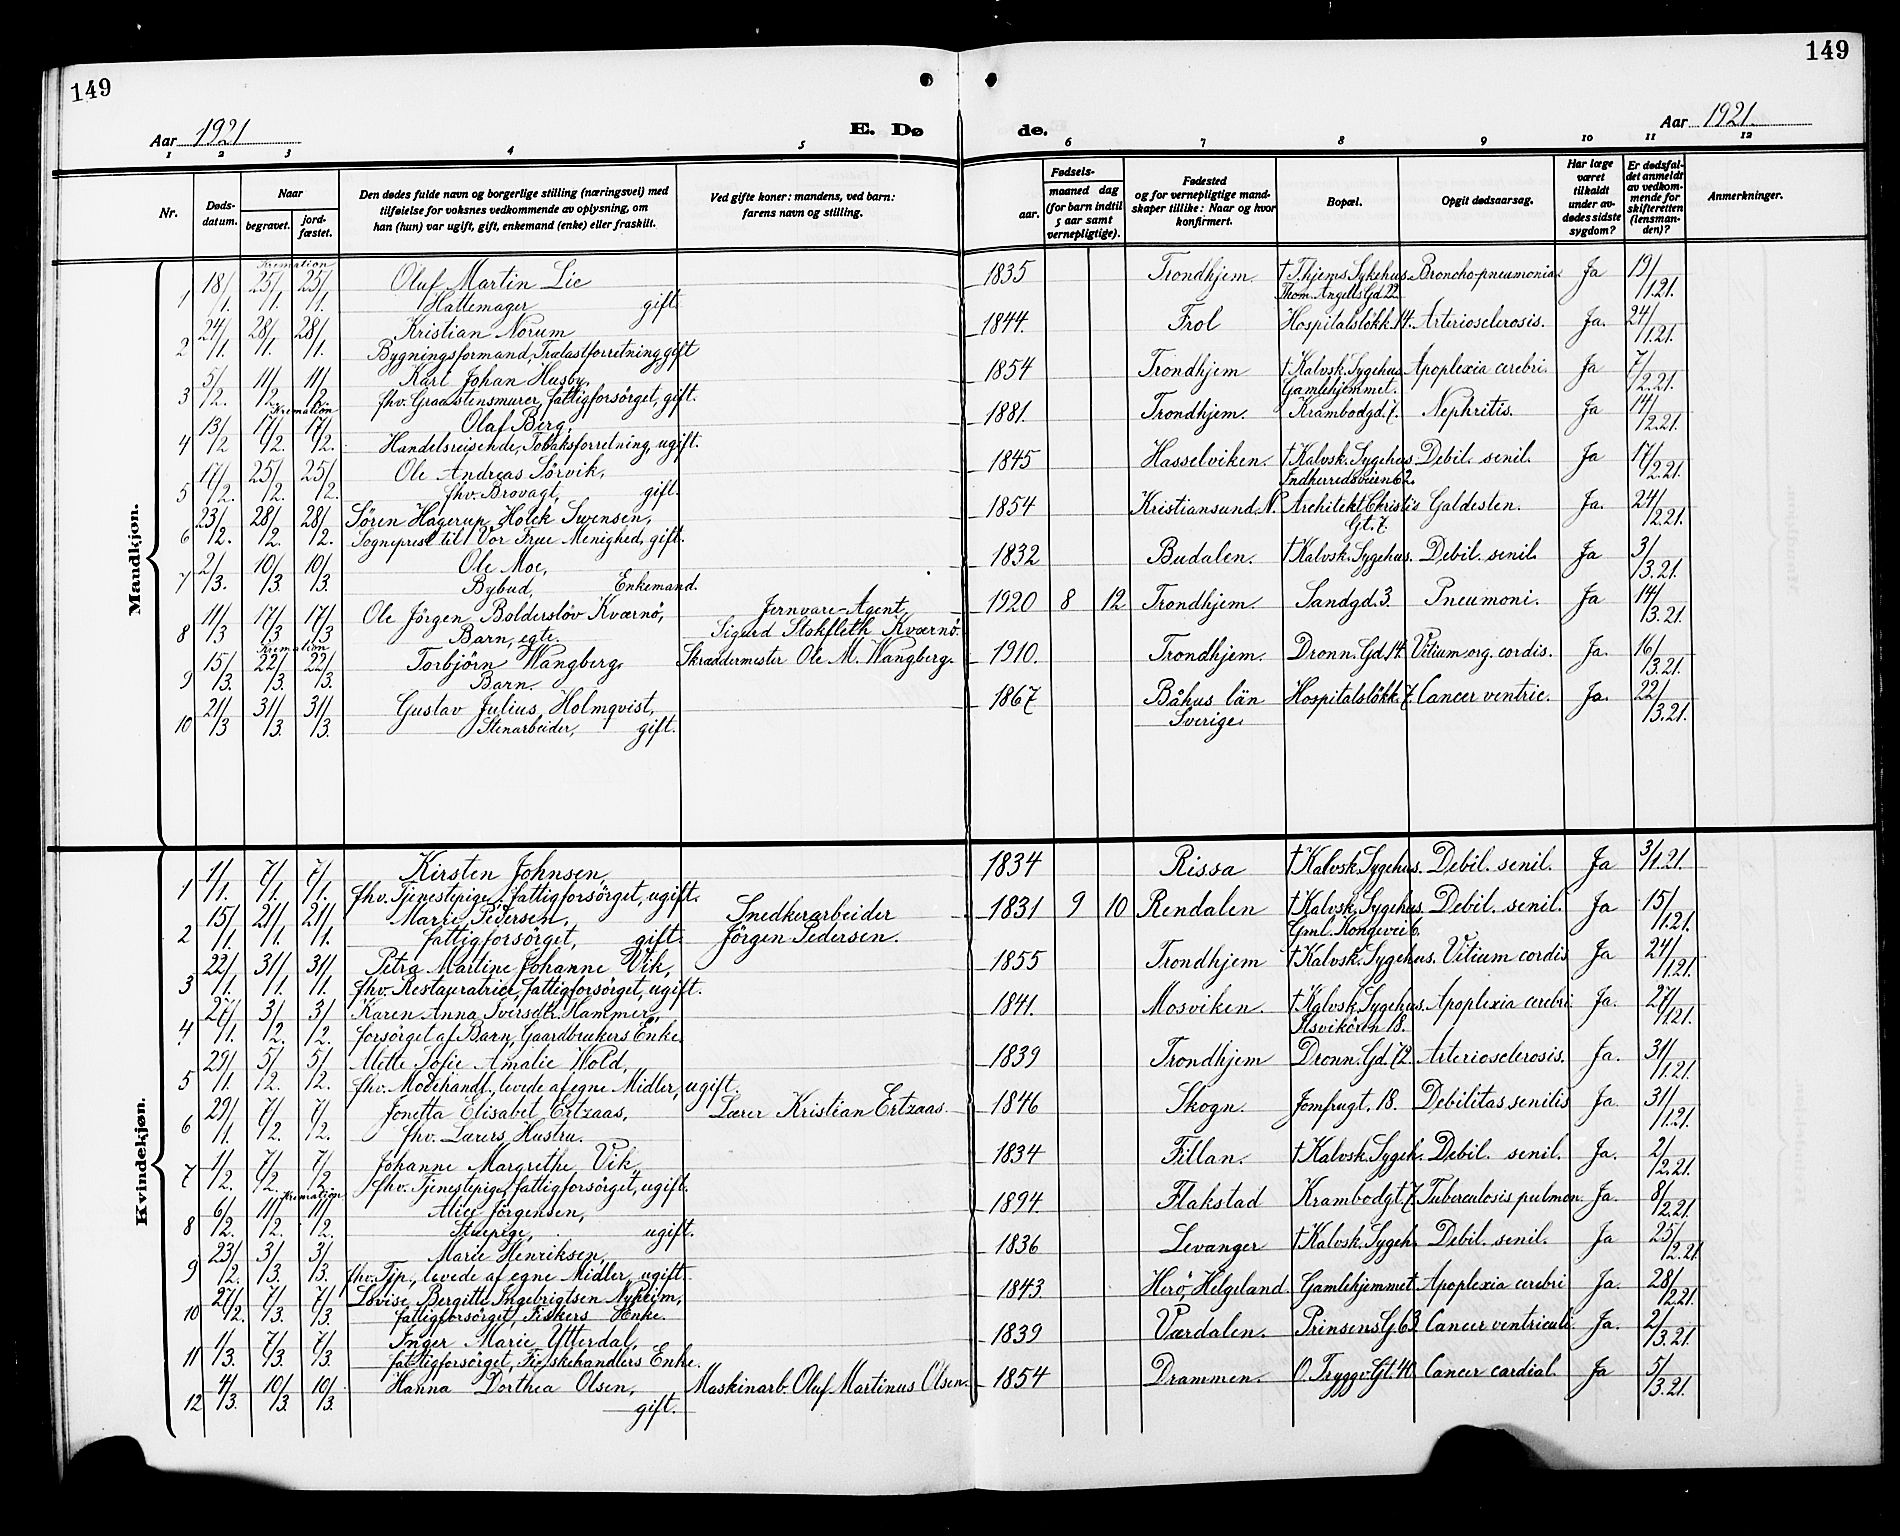 149
149
Aar 1921
E. Dø
de.
Aar 1921.
1 2 3 4 5 6 7 8 9 10 11 12
Nr.
Døds-datum.
Naar
begravet.
jord-fæstet.
Den dødes fulde navn og borgerlige stilling (næringsvei) med
tilføielse for voksnes vedkommende av oplysning, om
han (hun) var ugift, gift, enkemand (enke) eller fraskilt.
Ved gifte koner: mandens, ved barn:
farens navn og stilling.
Fødsels-
aar.
maaned dag
(for barn indtil
5 aar samt
vernepligtige).
Fødested
og for vernepligtige mand-
skaper tillike: Naar og hvor
konfirmert.
Bopæl.
Opgit dødsaarsag.
Har læge
været
tilkaldt
under av-
dødes sidste
sygdom?
Er dødsfal-
det anmeldt
av vedkom-
mende for
skifteretten
(lensman-
den)?
Anmerkninger.
Mandkjøn.
Kremation
1 18/1. 25/1. 25/1. Oluf Martin Lie 1835 Trondhjem. † T.hjems Sykehus. Broncho-pneumonia. Ja 19/1.21.
Hattemager gift. Thom. Angells Gd 22.
2 24/1. 28/1. 28/1. Kristian Norum 1844. Frol Hospitalsløkk. 14. Arteriosclerosis. Ja. 24/1.21.
Bygningsformand, Trælastforretning, gift
3 5/2. 11/2. 11/2. Karl Johan Husby, 1854 Trondhjem † Kalvsk. Sygehus Apoplexia cerebri. Ja 7/2.21.
fhv. Graastensmurer, fattigforsörget, gift. Gamlehjemmet.
Kremation
4 13/2 17/2. 17/2. Olaf Berg, 1881. Trondhjem. Krambodgd. 7. Nephritis. Ja 14/2.21.
Handelsreisende, Tobaksforretning, ugift.
5 17/2. 25/2. 25/2. Ole Andreas Sörvik, 1845 Hasselviken. † Kalvsk. Sygehus. Debil. senil. Ja 17/2.21.
fhv. Brovagt, gift. Indherredsveien 62.
6 23/2. 28/2. 28/2. Sören Hagerup Holck Swensen, 1854 Kristiansund N. Architekt Christis Galdesten. Ja. 24/2.21.
Sogneprest til Vor Frue Menighed, gift. Gt. 7.
7 2/3. 10/3. 10/3. Ole Moe, 1832 Budalen. † Kalvsk. Sygehus. Debil. senil. Ja 3/3.21.
Bybud, Enkemand.
8 11/3 17/3 17/3 Ole Jörgen Bolderslöv Kværnö, Jernvare-Agent, 1920 8 12 Trondhjem. Sandgd. 3. Pneumoni. Ja 14/3.21.
Barn, egte. Sigurd Stokfleth Kværnö.
Kremation
9 15/3. 22/3. 22/3. Torbjörn Wangberg, Skræddermester Ole M. Wangberg. 1910. Trondhjem. Dronn. Gd. 14. Vitium org. cordis. Ja. 16/3.21.
Barn.
10 21/3 31/3. 31/3. Gustav Julius Holmqvist, 1867 Båhus län Hospitalsløkk. 7. Cancer ventric. Ja. 22/3.21.
Stenarbeider, gift. Sverige.
Kvindekjøn.
1 1/1. 7/1. 7/1. Kirsten Johnsen, 1834 Rissa † Kalvsk. Sygehus. Debil. senil. Ja 3/1.21.
fhv. Tjenestepige, fattigforsörget, ugift.
2 15/1. 21/1. 21/1. Marie Pedersen, Snedkerarbeider 1831 9 10 Rendalen † Kalvsk. Sygehus. Debil. senil. Ja 15/1.21.
fattigforsörget, gift. Jörgen Pedersen. Gml. Kongevei 6.
3 22/1. 31/1. 31/1. Petra Martine Johanne Vik, 1855 Trondhjem † Kalvsk. Sygehus. Vitium cordis Ja 24/1.21.
fhv. Restauratrice, fattigforsörget, ugift.
4. 27/1. 3/2. 3/2. Karen Anna Sversdt. Hammer, 1841. Mosviken. † Kalvsk. Sygehus. Apoplexia cerebri. Ja. 27/1.21.
forsörget af Barn, Gaardbrukers Enke. Ilsvikören 18.
5 29/1. 5/2. 5/2. Mette Sofie Amalie Wold, 1839 Trondhjem Dronn. Gd. 72. Arteriosclerosis. Ja. 31/1.21.
fhv. Modehandl., levede af egne Midler, ugift.
6 29/1. 7/2. 7/2. Jonetta Elisabet Ertzaas, Lærer Kristian Ertzaas. 1846 Skogn. Jomfrugt. 18. Debilitas senilis Ja. 31/1.21.
fhv. Lærers Hustru.
7 1/2. 7/2. 7/2 Johanne Margrethe Vik, 1834 Fillan. † Kalvsk. Sygeh. Debil. senil. Ja. 2/2.21.
fhv. Tjenestepige, fattigforsörget, ugift.
Kremation
8 6/2. 11/2. 11/2. Alice Jörgensen, 1894. Flakstad Krambodgt. 7. Tuberculosis pulmon. Ja. 8/2.21.
Stuepige, ugift.
9 23/2. 3/3. 3/3. Marie Henriksen, 1836 Levanger † Kalvsk. Sygeh. Debil. senil. Ja 25/2.21
fhv. Tjp., levede af egne Midler, ugift.
10 27/2. 7/3. 7/3. Lovise Bergitte Ingebrigtsen Nyheim, 1843. Herö, Helgeland. Gamlehjemmet. Apoplexia cerebri Ja. 28/2.21.
fattigforsörget, Fiskers Enke.
11 1/3. 7/3. 7/3. Inger Marie Ytterdal, 1839 Værdalen. Prinsens G. 63. Cancer ventriculi. Ja. 2/3.21.
fattigforsörget, Fiskehandlers Enke.
12 4/3. 10/3 10/3. Hanna Dorthea Olsen, Maskinarb. Oluf Martinus Olsen. 1854 Drammen. O. Tryggv. Gt. 40. Cancer cardial. Ja 5/3.21.
gift.